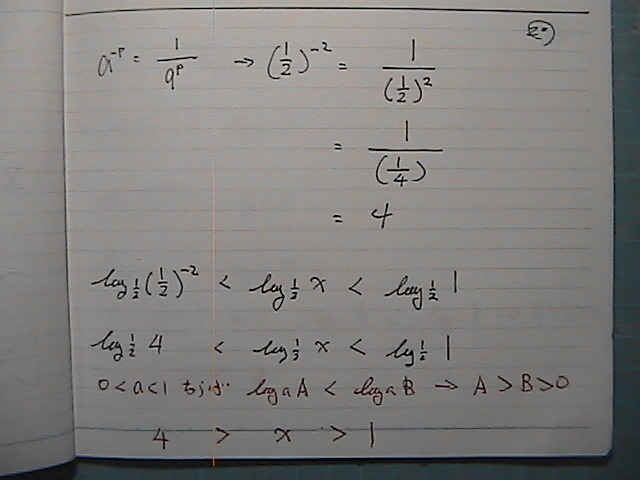 20
a^-p = 1/a^p → (1/2)^-2 = 1/(1/2)^2
= 1/(1/4)
= 4
log_1/2 (1/2)^-2 < log_1/2 x < log_1/2 1
log_1/2 4 < log_1/2 x < log_1/2 1
0 < a < 1 ならば log a A < log a B → A > B > 0
4 > x > 1